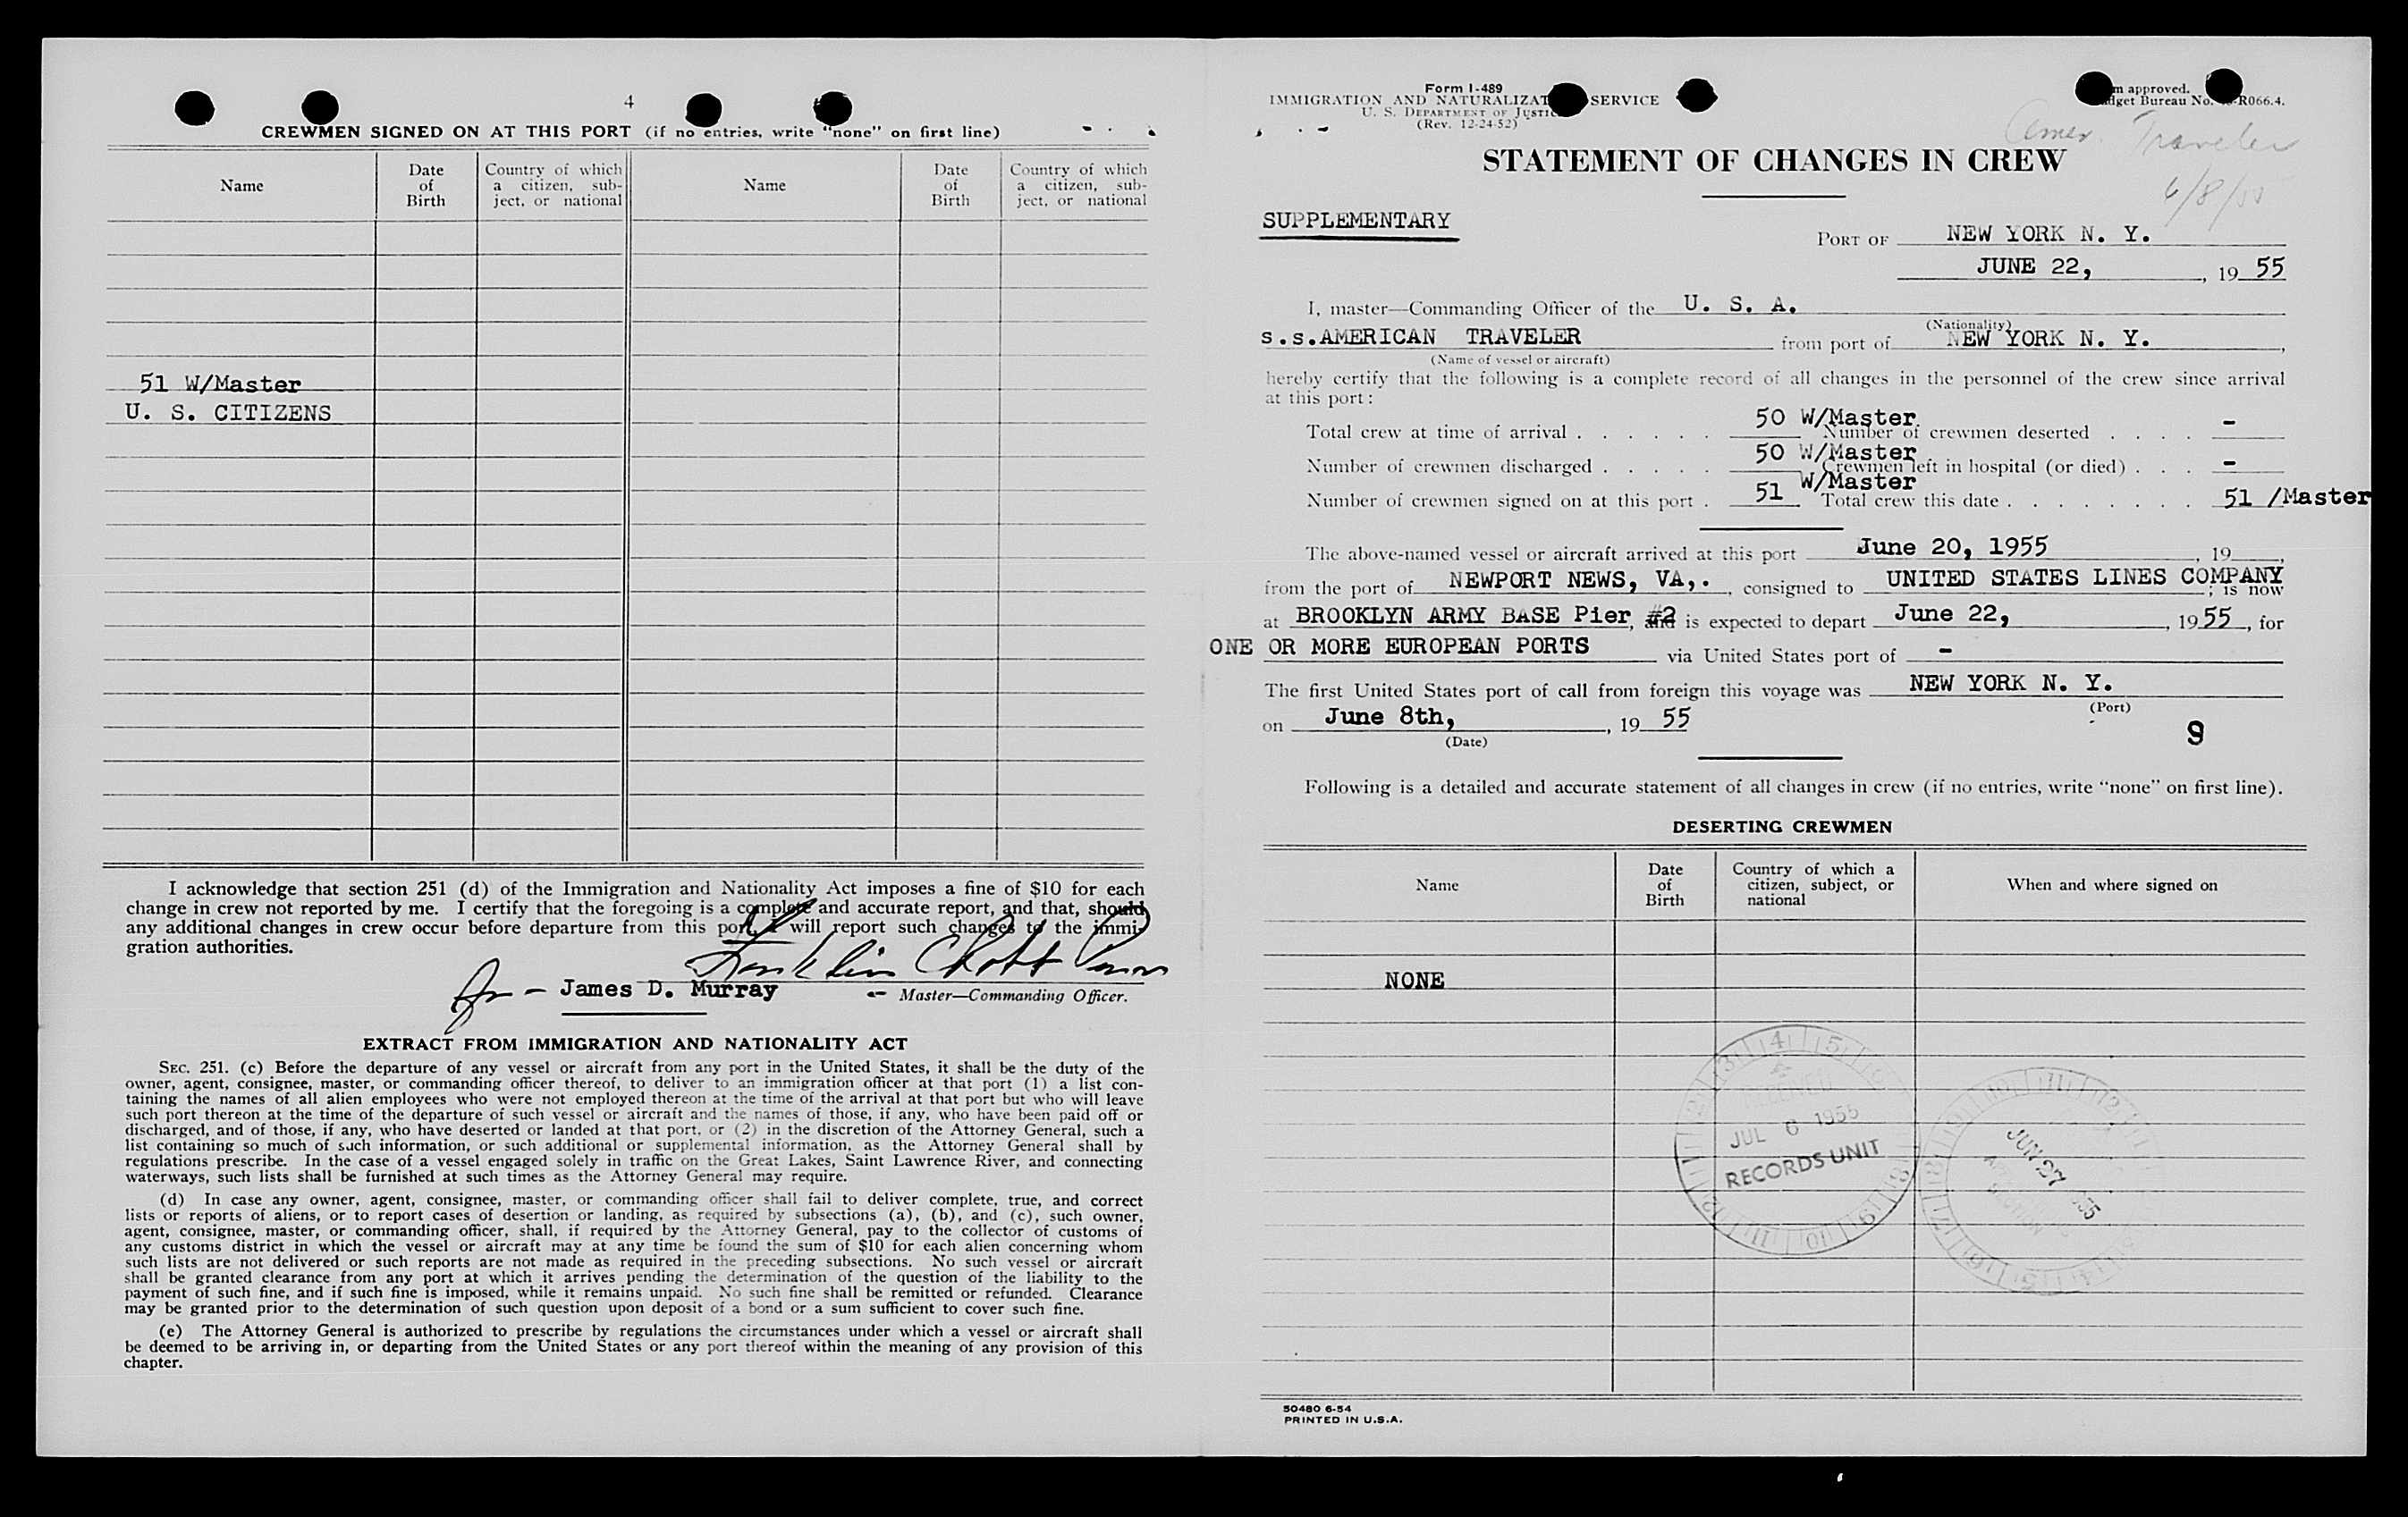 4
CREWMEN SIGNED ON AT THIS PORT (if no entries, write "none" on first line)
Name
Date of Birth
Country of which a citizen, sub-ject, or national
Name
Date of Birth
Country of which a citizen, sub-ject, or national
51 W/Master
U. S. CITIZENS
I acknowledge that section 251 (d) of the Immigration and Nationality Act imposes a fine of $10 for each
change in crew not reported by me. I certify that the foregoing is a complete and accurate report, and that, should
any additional changes in crew occur before departure from this port, I will report such changes to the immi-
gration authorities.
for - James D. Murray
Master—Commanding Officer.
EXTRACT FROM IMMIGRATION AND NATIONALITY ACT
SEC. 251. (c) Before the departure of any vessel or aircraft from any port in the United States, it shall be the duty of the
owner, agent, consignee, master, or commanding officer thereof, to deliver to an immigration officer at that port (1) a list con-
taining the names of all alien employees who were not employed thereon at the time of the arrival at that port but who will leave
such port thereon at the time of the departure of such vessel or aircraft and the names of those, if any, who have been paid off or
discharged, and of those, if any, who have deserted or landed at that port, or (2) in the discretion of the Attorney General, such a
list containing so much of such information, or such additional or supplemental information, as the Attorney General shall by
regulations prescribe. In the case of a vessel engaged solely in traffic on the Great Lakes, Saint Lawrence River, and connecting
waterways, such lists shall be furnished at such times as the Attorney General may require.
(d) In case any owner, agent, consignee, master, or commanding officer shall fail to deliver complete, true, and correct
lists or reports of aliens, or to report cases of desertion or landing, as required by subsections (a), (b), and (c), such owner,
agent, consignee, master, or commanding officer, shall, if required by the Attorney General, pay to the collector of customs of
any customs district in which the vessel or aircraft may at any time be found the sum of $10 for each alien concerning whom
such lists are not delivered or such reports are not made as required in the preceding subsections. No such vessel or aircraft
shall be granted clearance from any port at which it arrives pending the determination of the question of the liability to the
payment of such fine, and if such fine is imposed, while it remains unpaid. No such fine shall be remitted or refunded. Clearance
may be granted prior to the determination of such question upon deposit of a bond or a sum sufficient to cover such fine.
(e) The Attorney General is authorized to prescribe by regulations the circumstances under which a vessel or aircraft shall
be deemed to be arriving in, or departing from the United States or any port thereof within the meaning of any provision of this
chapter.
Form I-489
IMMIGRATION AND NATURALIZAT SERVICE
U. S. DEPARTMENT OF JUSTIC
(Rev. 12-24-52)
m approved.
dget Bureau No. -R066.4.
Amer. Traveler
6/8/55
STATEMENT OF CHANGES IN CREW
SUPPLEMENTARY
PORT OF NEW YORK N. Y.
JUNE 22, , 19 55
I, master—Commanding Officer of the U. S. A.
(Nationality)
s.s.AMERICAN TRAVELER from port of NEW YORK N. Y. ,
(Name of vessel or aircraft)
hereby certify that the following is a complete record of all changes in the personnel of the crew since arrival
at this port:
Total crew at time of arrival . . . . . . 50 W/Master. Number of crewmen deserted . . . . -
Number of crewmen discharged . . . . . 50 W/Master Crewmen left in hospital (or died) . . . -
Number of crewmen signed on at this port . 51 W/Master Total crew this date . . . . . . . . 51 /Master
The above-named vessel or aircraft arrived at this port June 20, 1955 , 19 ,
from the port of NEWPORT NEWS, VA,. , consigned to UNITED STATES LINES COMPANY ; is now
at BROOKLYN ARMY BASE Pier, #2 and is expected to depart June 22, , 1955 , for
ONE OR MORE EUROPEAN PORTS via United States port of -
The first United States port of call from foreign this voyage was NEW YORK N. Y.
(Port)
on June 8th, , 19 55
(Date)
S
Following is a detailed and accurate statement of all changes in crew (if no entries, write "none" on first line).
DESERTING CREWMEN
Name
Date of Birth
Country of which a citizen, subject, or national
When and where signed on
NONE
JUL 6 1955
RECORDS UNIT
JUN 27
50480 6-54
PRINTED IN U.S.A.